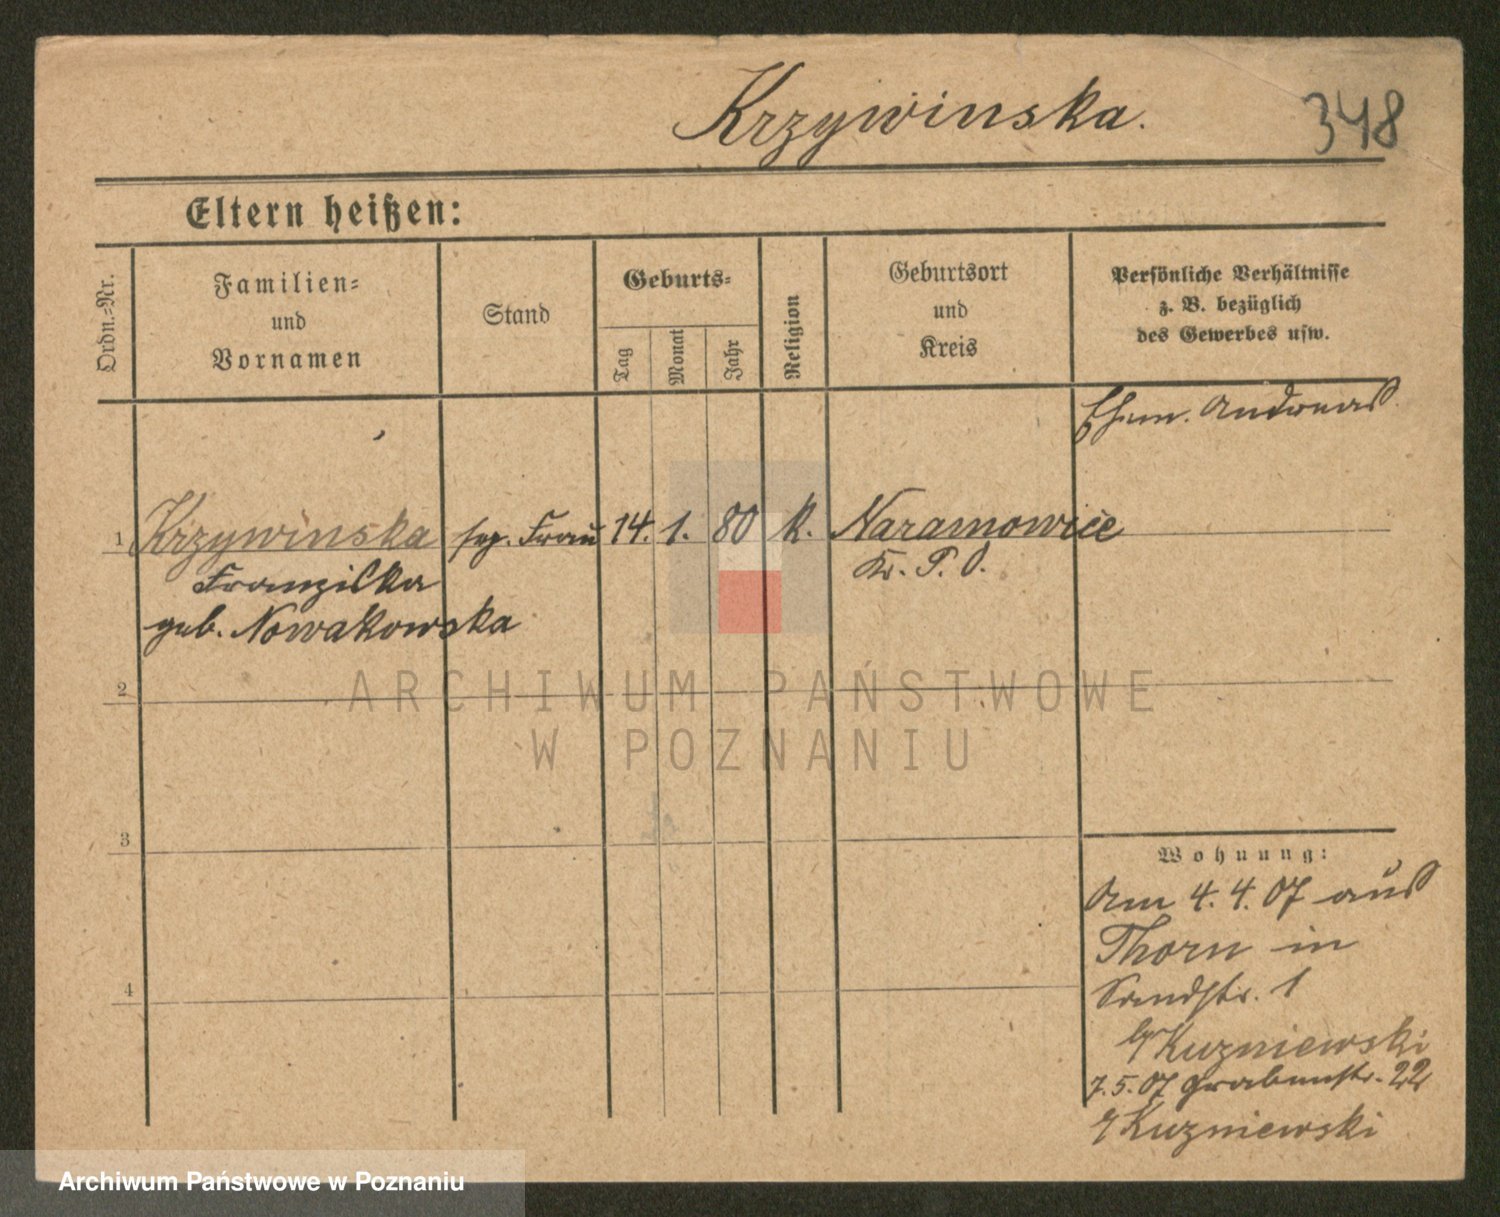 Krzywinska.
348
Eltern heißen:
Ordn.-Nr.
Familien-
und
Vornamen
Stand
Geburts-
Tag
Monat
Jahr
Religion
Geburtsort
und
Kreis
Persönliche Verhältnisse
z. B. bezüglich
des Gewerbes usw.
Ehem. Andreas
1 Krzywinska sep. Frau 14. 1. 80 k. Naramowice
Franziska Kr. P. O.
geb. Nowakowska
2
ARCHIWUM PAŃSTWOWE
W POZNANIU
3
Wohnung:
Am 4. 4. 07 aus
Thorn in
Sandstr. 1
4
b/ Kuzniewski
7. 5. 07 Grabenstr. 22
Kuzniewski
Archiwum Państwowe w Poznaniu